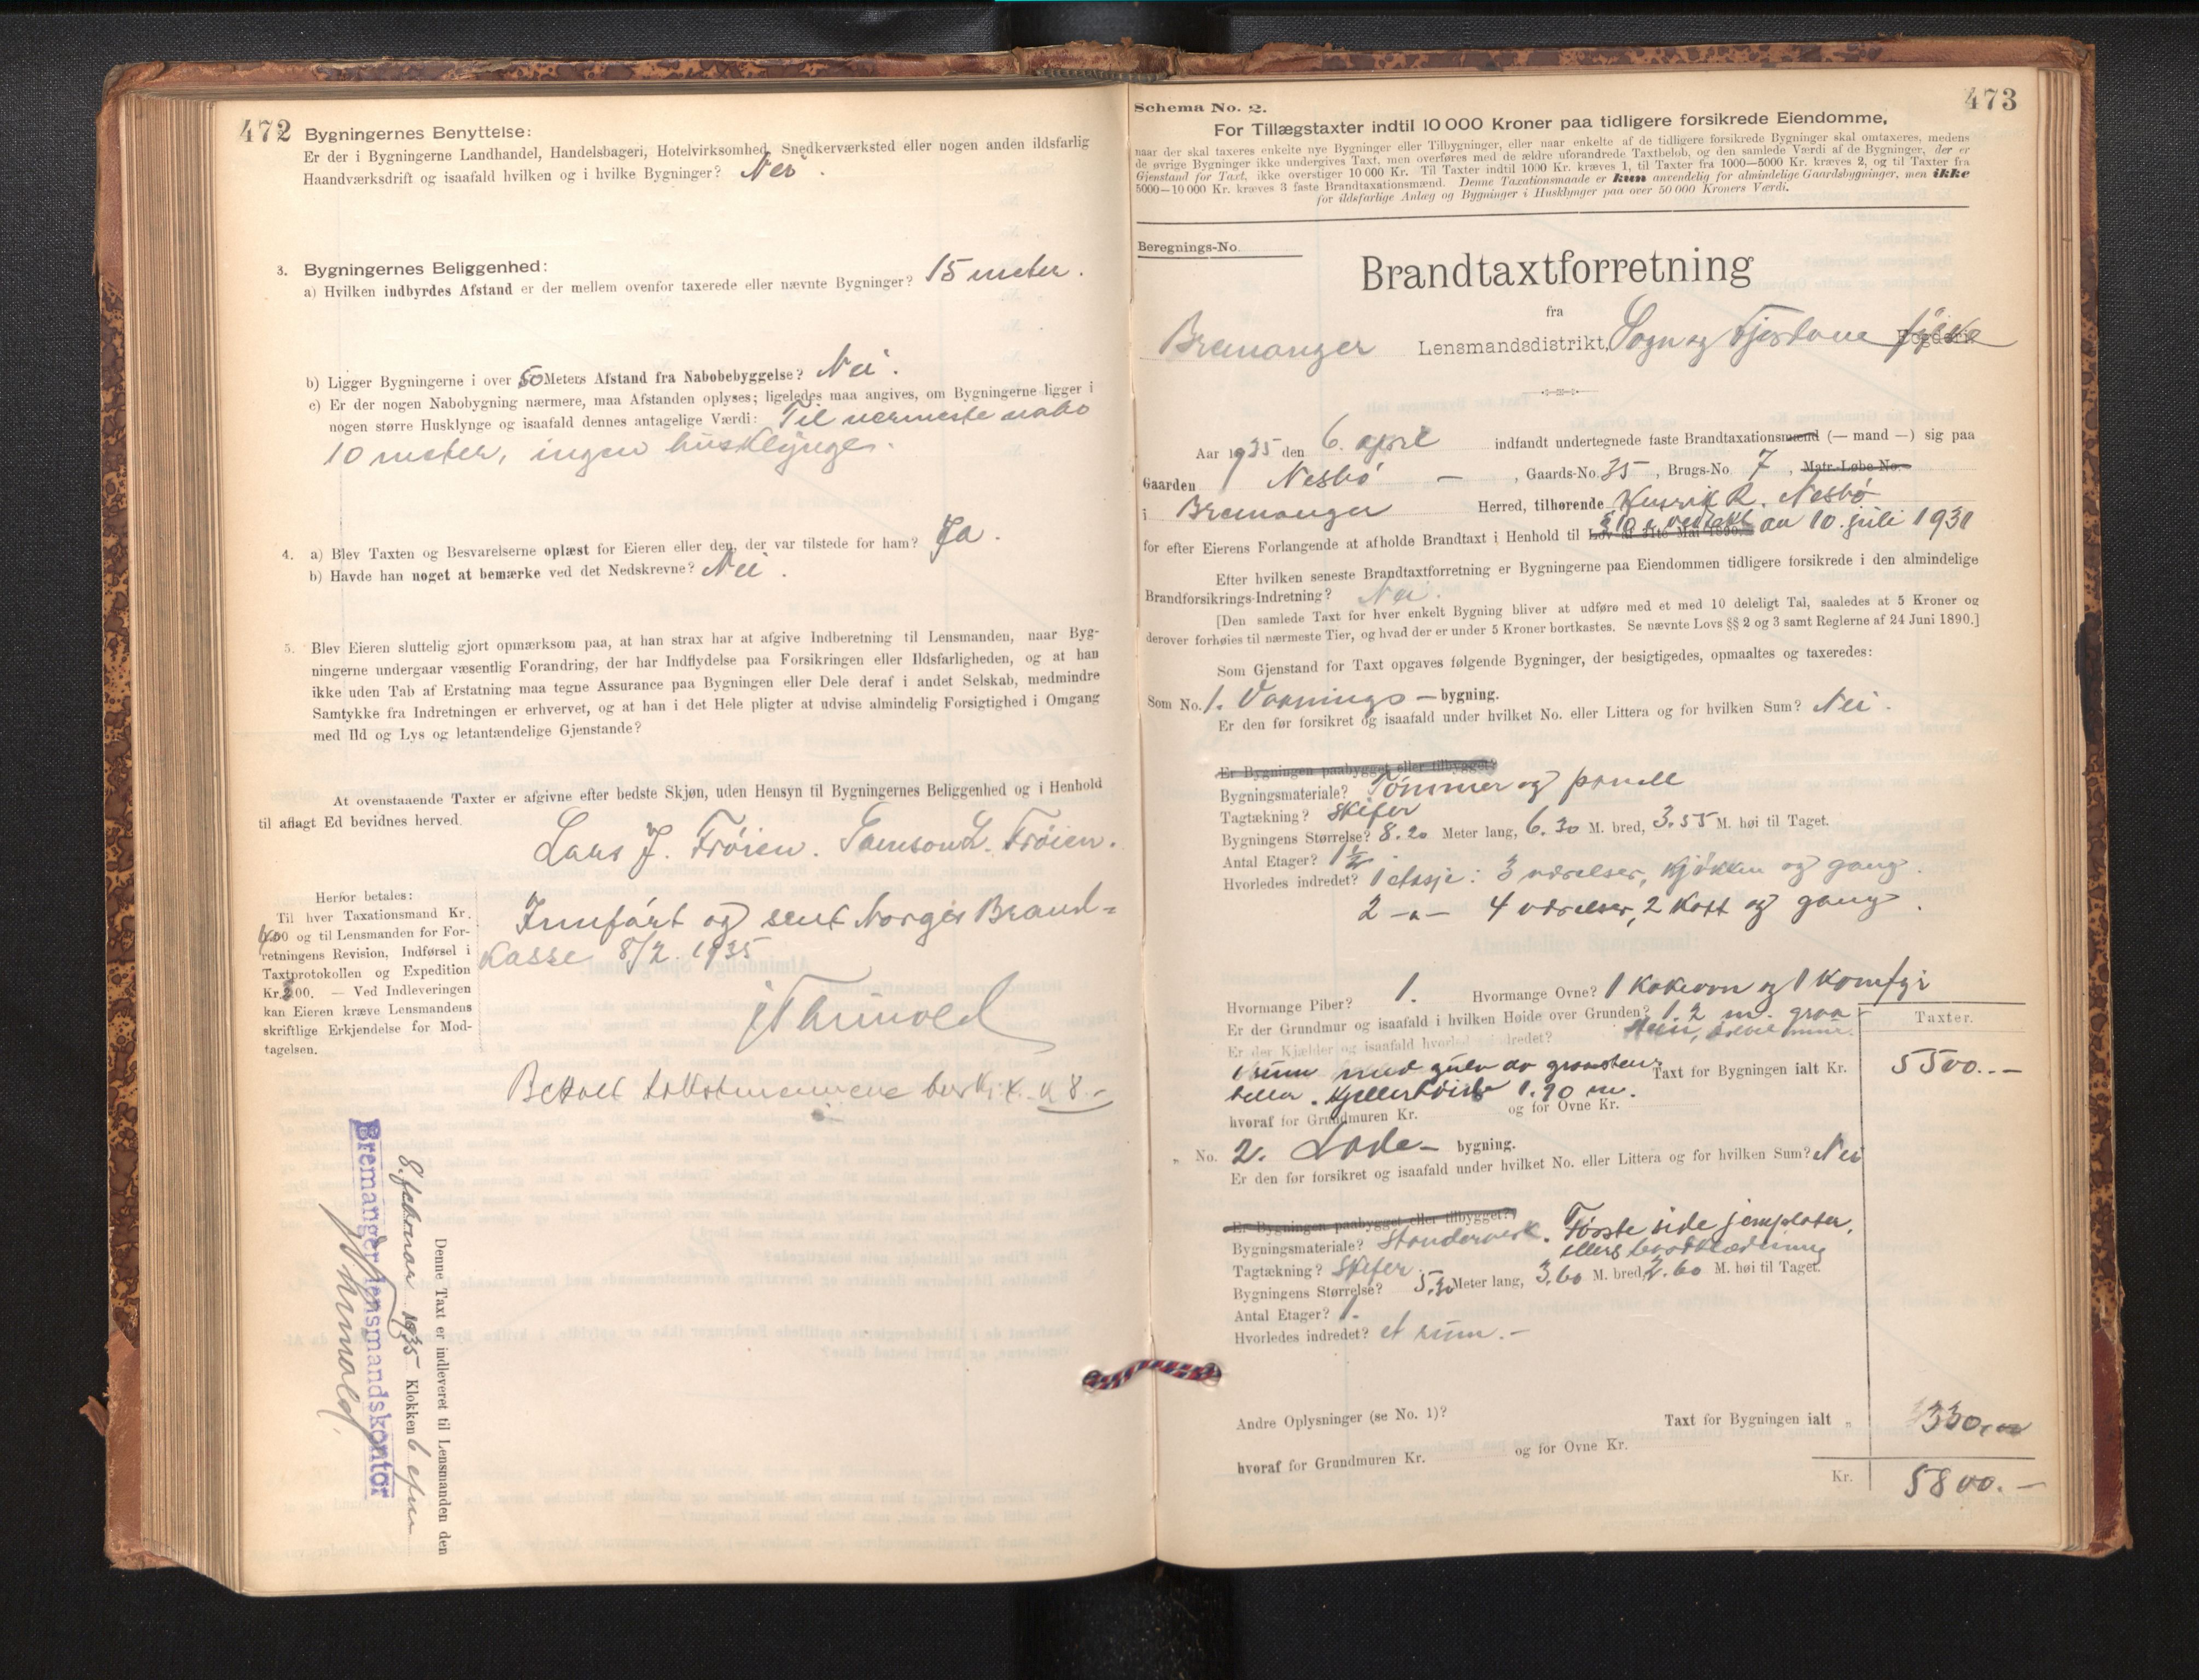 472
Bygningernes Benyttelse:
Er der i Bygningerne Landhandel, Handelsbageri, Hotelvirksomhed, Snedkerværksted eller nogen anden ildsfarlig
Haandværksdrift og isaafald hvilken og i hvilke Bygninger? Nei.
3. Bygningernes Beliggenhed:
a) Hvilken indbyrdes Afstand er der mellem ovenfor taxerede eller nævnte Bygninger? 15 meter.
b) Ligger Bygningerne i over 50 Meters Afstand fra Nabobebyggelse? Nei.
c) Er der nogen Nabobygning nærmere, maa Afstanden oplyses; ligeledes maa angives, om Bygningerne ligger i
nogen større Husklynge og isaafald dennes antagelige Værdi: Til nærmeste nabo
10 meter, ingen husklynge.
4. a) Blev Taxten og Besvarelserne oplæst for Eieren eller den, der var tilstede for ham? Ja.
b) Havde han noget at bemærke ved det Nedskrevne? Nei.
5. Blev Eieren sluttelig gjort opmærksom paa, at han strax har at afgive Indberetning til Lensmanden, naar Byg-
ningerne undergaar væsentlig Forandring, der har Indflydelse paa Forsikringen eller Ildsfarligheden, og at han
ikke uden Tab af Erstatning maa tegne Assurance paa Bygningen eller Dele deraf i andet Selskab, medmindre
Samtykke fra Indretningen er erhvervet, og at han i det Hele pligter at udvise almindelig Forsigtighed i Omgang
med Ild og Lys og letantændelige Gjenstande?
At ovenstaaende Taxter er afgivne efter bedste Skjøn, uden Hensyn til Bygningernes Beliggenhed og i Henhold
til aflagt Ed bevidnes herved.
Lars J. Frøien. Samson L. Frøien.
Herfor betales:
Til hver Taxationsmand Kr.
4.00 og til Lensmanden for For-
retningens Revision, Indførsel i
Taxtprotokollen og Expedition
Kr. 00. — Ved Indleveringen
kan Eieren kræve Lensmandens
skriftlige Erkjendelse for Mod-
tagelsen.
Innført og sent Norges Brand-
kasse 8/2. 1935
Betalt takstmennene
8.-
Denne Taxt er indleveret til Lensmanden den
8. februar 1935 Klokken 6 efm
Bremanger lensmandskontor
473
Schema No. 2.
For Tillægstaxter indtil 10 000 Kroner paa tidligere forsikrede Eiendomme,
naar der skal taxeres enkelte nye Bygninger eller Tilbygninger, eller naar enkelte af de tidligere forsikrede Bygninger skal omtaxeres, medens
de øvrige Bygninger ikke undergives Taxt, men overføres med de ældre uforandrede Taxtbeløb, og den samlede Værdi af de Bygninger, der er
Gjenstand for Taxt, ikke overstiger 10 000 Kr. Til Taxter indtil 1000 Kr. kræves 1, til Taxter fra 1000—5000 Kr. kræves 2, og til Taxter fra
5000—10 000 Kr. kræves 3 faste Brandtaxationsmænd. Denne Taxationsmaade er kun anvendelig for almindelige Gaardsbygninger, men ikke
for ildsfarlige Anlæg og Bygninger i Husklynger paa over 50 000 Kroners Værdi.
Beregnings-No.
Brandtaxtforretning
fra
Bremanger Lensmandsdistrikt, Sogn og Fjordane fylke Fogderi
Aar 1935 den 6. april indfandt undertegnede faste Brandtaxationsmænd (— mand —) sig paa
Gaarden Nesbø — , Gaards-No. 35 , Brugs-No. 7 , Matr.-Løbe-No.
i Bremanger Herred, tilhørende Henrik R. Nesbø
for efter Eierens Forlangende at afholde Brandtaxt i Henhold til Lov af 31te Mai 1890. § 10 i vedtekt av 10. juli 1931
Efter hvilken seneste Brandtaxtforretning er Bygningerne paa Eiendommen tidligere forsikrede i den almindelige
Brandforsikrings-Indretning? Nei.
[Den samlede Taxt for hver enkelt Bygning bliver at udføre med et med 10 deleligt Tal, saaledes at 5 Kroner og
derover forhøies til nærmeste Tier, og hvad der er under 5 Kroner bortkastes. Se nævnte Lovs §§ 2 og 3 samt Reglerne af 24 Juni 1890.]
Som Gjenstand for Taxt opgaves følgende Bygninger, der besigtigedes, opmaaltes og taxeredes:
Som No. 1. Vaanings- bygning.
Er den før forsikret og isaafald under hvilket No. eller Littera og for hvilken Sum? Nei.
Er Bygningen paabygget eller tilbygget?
Bygningsmateriale? Tømmer og panell
Tagtækning? Skifer
Bygningens Størrelse? 8.20 Meter lang, 6.30 M. bred, 3.55 M. høi til Taget.
Antal Etager? 1½
Hvorledes indredet? 1 etasje: 3 værelser, kjøkken og gang.
2 -"- 4 værelser, 2 kott og gang.
Hvormange Piber? 1. Hvormange Ovne? 1 kokeovn og 1 komfyr
Er der Grundmur og isaafald i hvilken Høide over Grunden? 1.2 m. graa-
Er der Kjælder og isaafald hvorledes indredet? stein,
1 rum med gulv av graasteins-
heller. Kjellerhøide 1.90 m. Taxt for Bygningen ialt Kr.
Taxter.
5500.-
hvoraf for Grundmuren Kr. og for Ovne Kr.
„ No. 2. Løde- bygning.
Er den før forsikret og isaafald under hvilket No. eller Littera og for hvilken Sum? Nei
Er Bygningen paabygget eller tilbygget?
Bygningsmateriale? Standerverk. Første side jernplater,
ellers bordklædning
Tagtækning? Skifer.
Bygningens Størrelse? 5.30 Meter lang, 3.60 M. bred, 2.60 M. høi til Taget.
Antal Etager? 1.
Hvorledes indredet? et rum.-
Andre Oplysninger (se No. 1)? Taxt for Bygningen ialt „ 330.00
hvoraf for Grundmuren Kr. og for Ovne Kr.
Kr. 5800.-